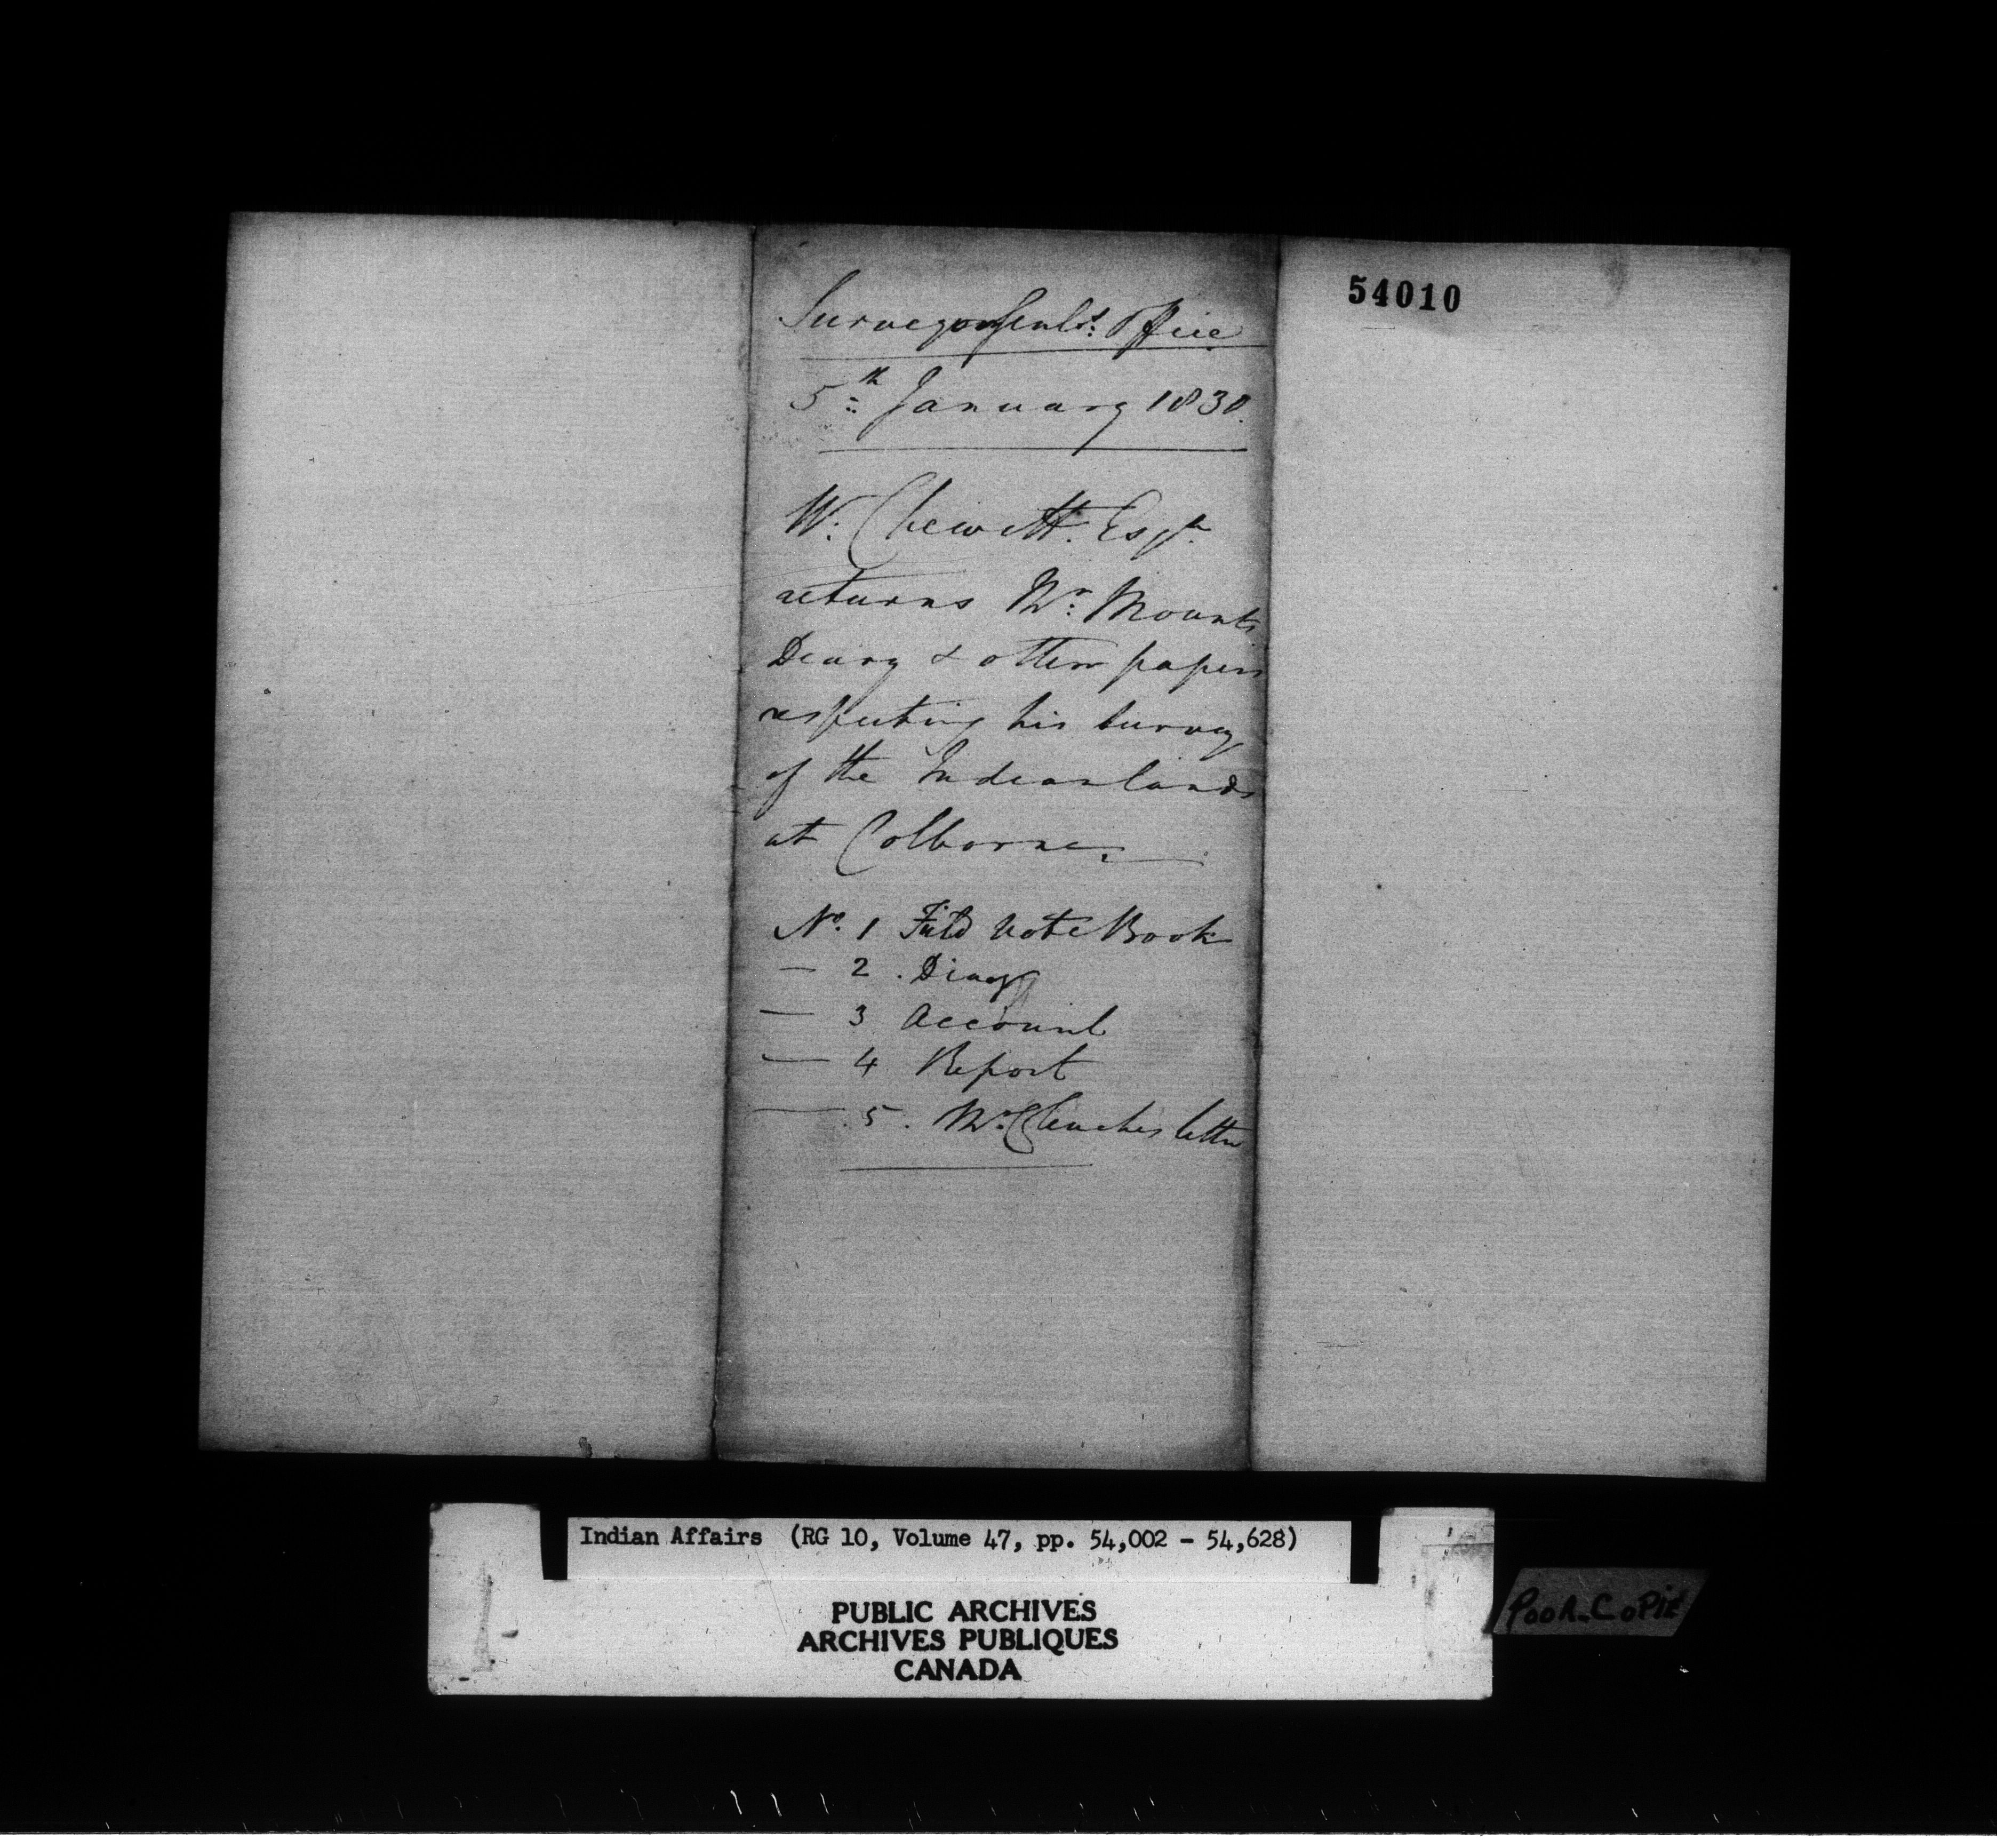 54010
Surveyor Genls. Office
5th January 1830.
W. Chewett. Esqr.
returns Mr. Mounts
Diary & other papers
respecting his survey
of the Indian lands
at Colborne.
No. 1 Field Note Book
— 2. Diary
— 3 Account
— 4 Report
— 5. Mr. Clenches letter
Indian Affairs (RG 10, Volume 47, pp. 54,002 - 54,628)
PUBLIC ARCHIVES
ARCHIVES PUBLIQUES
CANADA
POOR-COPIE